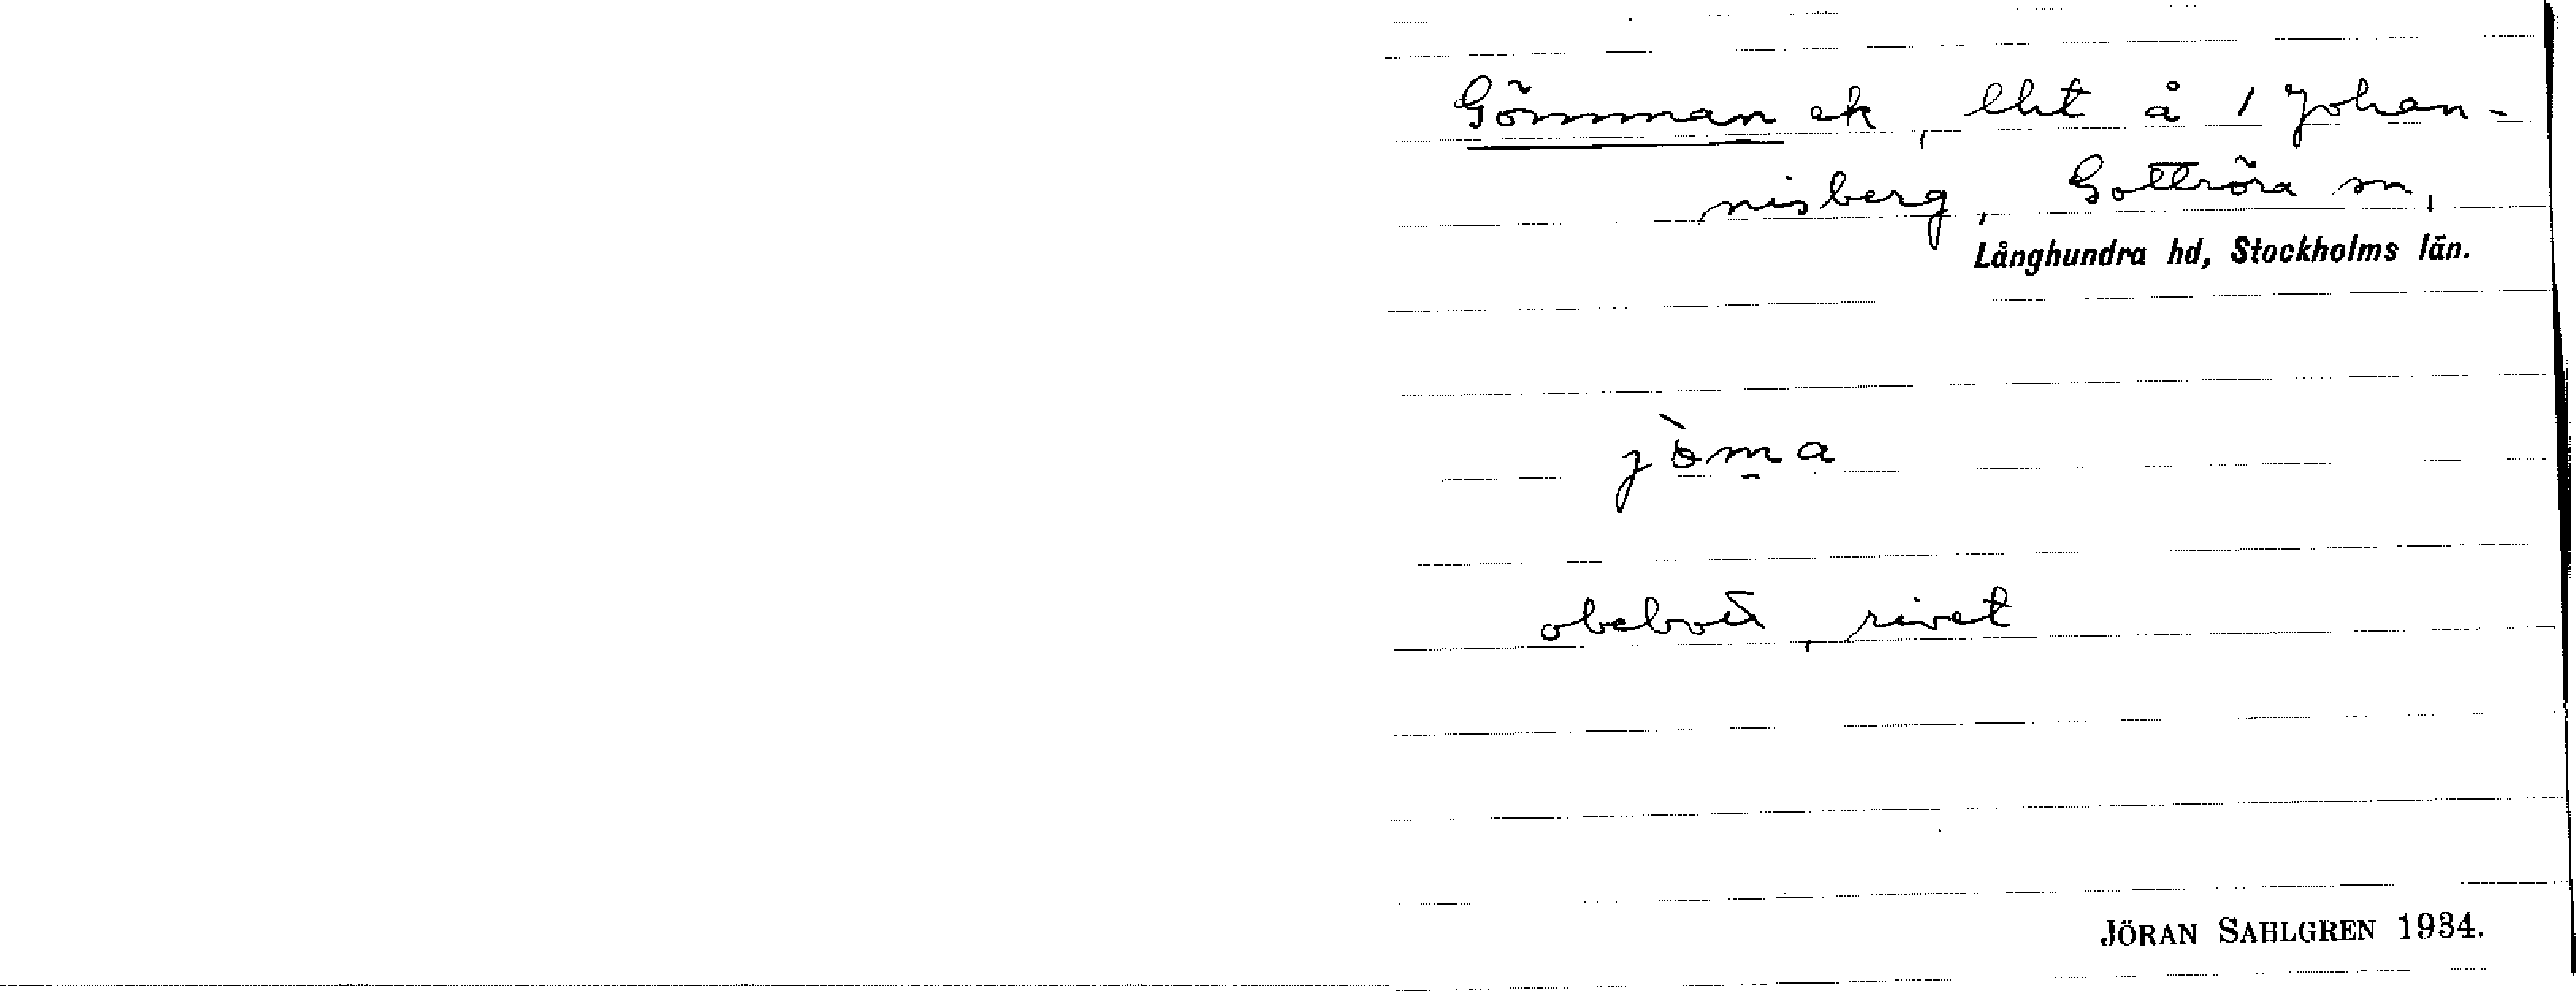 Gömman ek, lht å 1 Johan-
nisberg, Gottröra sn,
Långhundra hd, Stockholms län.
jòma
obebott, rivet
JÖRAN SAHLGREN 1934.